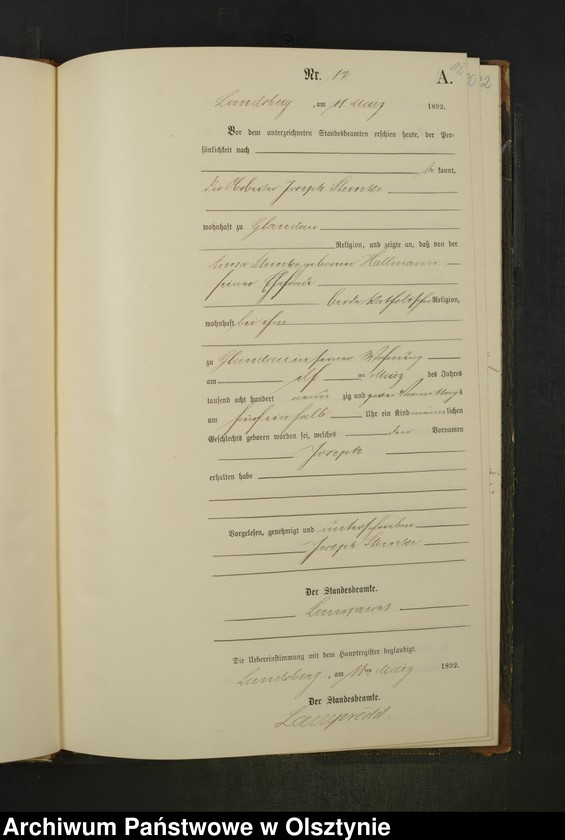 Nr. 12 A.
Landsberg, am 11 März 1892.
Vor dem unterzeichneten Standesbeamten erschien heute, der Per-
sönlichkeit nach
be kannt,
der Arbeiter Joseph Steinke
wohnhaft zu Glandau
Religion, und zeigte an, daß von der
Anna Steinke geborenen Hallmann
seiner Ehefrau
beide katholischer Religion,
wohnhaft bei ihm
zu Glandau in seiner Wohnung
am elf ten März des Jahres
tausend acht hundert neun zig und zwei Vormittags
um fünf ein halb Uhr ein Kind männlichen
Geschlechts geboren worden sei, welches den Vornamen
Joseph
erhalten habe
Vorgelesen, genehmigt und unterschrieben
Joseph Steinke
Der Standesbeamte.
Die Uebereinstimmung mit dem Hauptregister beglaubigt.
Landsberg, am 11ten März 1892.
Der Standesbeamte.
Lamprecht
Archiwum Państwowe w Olsztynie